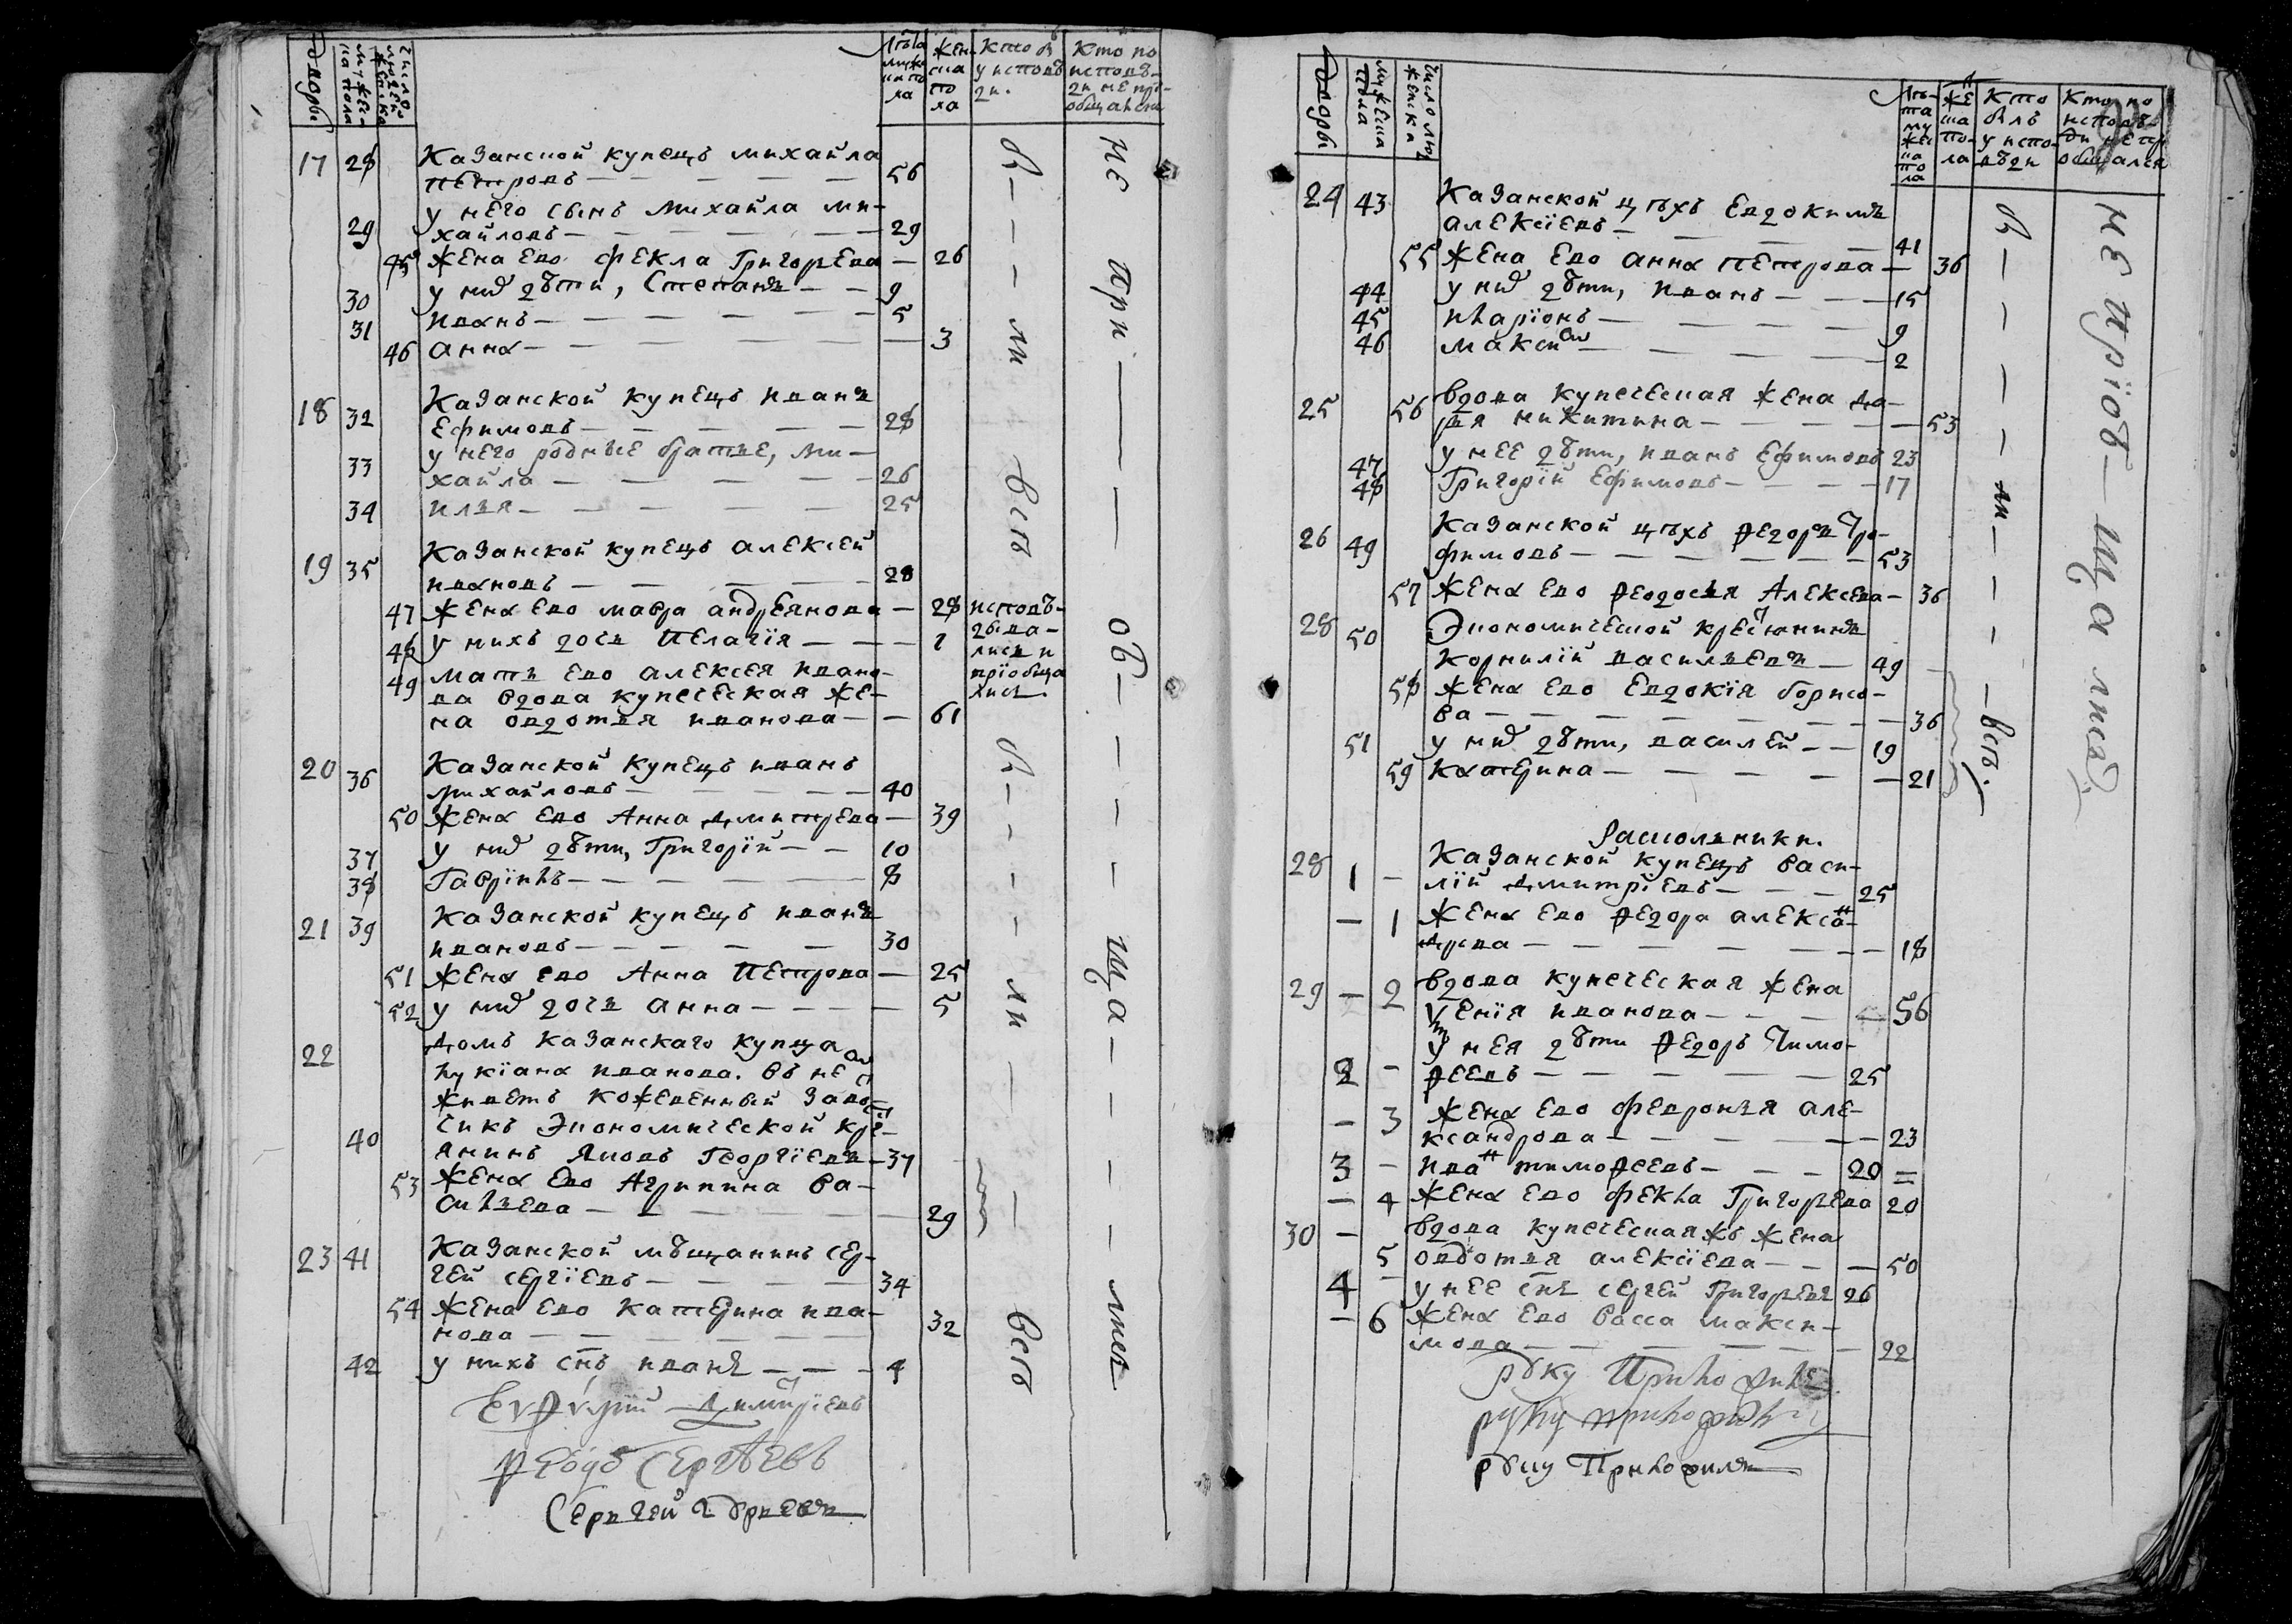 Дворы
число людей
мужеска пола
женска
Лѣта
мужеска пола
женска пола
Кто былъ у исповѣди.
Кто по исповѣди не пріобщался
17 28 Казанской купецъ михайла
петровъ — — — — — 56
29 у него сынъ михайла ми-
хайловъ — — — — — 29
45 жена ево фекла Григорева — 26
30 у нихъ дѣти, Степанъ — — 9
31 иванъ — — — — — 5
46 анна — — — — — 3
18 32 Казанской купецъ иванъ
Ефимовъ — — — — — 28
33 у него родные братье, ми-
хайла — — — — — 26
34 илья — — — — — 25
19 35 Казанской купецъ алексей
ивановъ — — — — — 28
47 жена ево мавра андреянова — 28
48 у нихъ дочь пелагія — — — 1
49 мать ево алексея ивано-
ва вдова купеческая же-
на овдотья иванова — — 61
исповѣ-
дыва-
лись и
пріобща
лись.
20 36 Казанской купецъ иванъ
михайловъ — — — — — 40
50 жена ево Анна дмитрева — 39
37 у нихъ дѣти, Григорій — — 10
38 Гаврілъ — — — — — 8
21 39 Казанской купецъ иванъ
ивановъ — — — — — 30
51 жена ево Анна Петрова — 25
52 у нихъ дочь анна — — — — 5
22 домъ казанскаго купца
лукіана иванова. въ нем
живетъ кожевенный заво-
40 чикъ Экономической кре-
янинъ яковъ Георгіевъ — 37
53 жена ево Агрипина ва-
сильева — — — — — 29
23 41 Казанской мѣщанинъ сер-
гей сергіевъ — — — — 34
54 жена ево катерина ива-
нова — — — — — 32
42 у нихъ снъ иванъ — — — 4
бы — — — ли всѣ
бы — — — ли — — всѣ
не при — — — об — — — ща — — — лися
Дворы
мужеска пола
число лю
женска
Лѣта мужеска пола
жен
ска
пола
Кто былъ у исповѣди
Кто по исповѣди не пріобщался
24 43 Казанской цѣхъ Евдокимъ
алексіевъ — — — — 41
55 жена ево анна петрова — 36
44 у нихъ дѣти, иванъ — — — 15
45 иларіонъ — — — — — 9
46 максим — — — — — 2
25 56 вдова купеческая жена да-
рья никитина — — — — 53
47 у нее дѣти, иванъ Ефимовъ 23
48 Григорій Ефимовъ — — — — 17
26 49 Казанской цѣхъ Ѳедоръ Тро-
фимовъ — — — — — 53
57 жена ево Ѳеодосья Алексева — 36
28 50 Экономической крестянинъ
корнилій васильевъ — 49
58 жена ево Евдокія борисо-
ва — — — — — 36
51 у нихъ дѣти, василей — — 19
59 катерина — — — — — 21
Раскольники.
28 1 — Казанской купецъ васи-
лій дмитріевъ — — — 25
— 1 жена ево Ѳедора алексан-
древа — — — — — 18
29 — 2 вдова купеческая жена
иванова — — — — 56
у нея дѣти Ѳедоръ Тимо-
2 — Ѳеевъ — — — — — 25
— 3 жена ево февронья але-
ксандрова — — — — — 23
3 — иван тимоѲеевъ — — — 20
— 4 жена ево фекла Григорева 20
30 — вдова купеческая жена
5 овдотья алексіева — — — 50
4 — у нее снъ сергей Григоревъ 26
— 6 жена ево васса макси-
мова — — — — — 22
бы — — — — ли — — — всѣ.
не пріоб — ща лися.
руку Приложилъ
руку приложилъ
руку Приложилъ